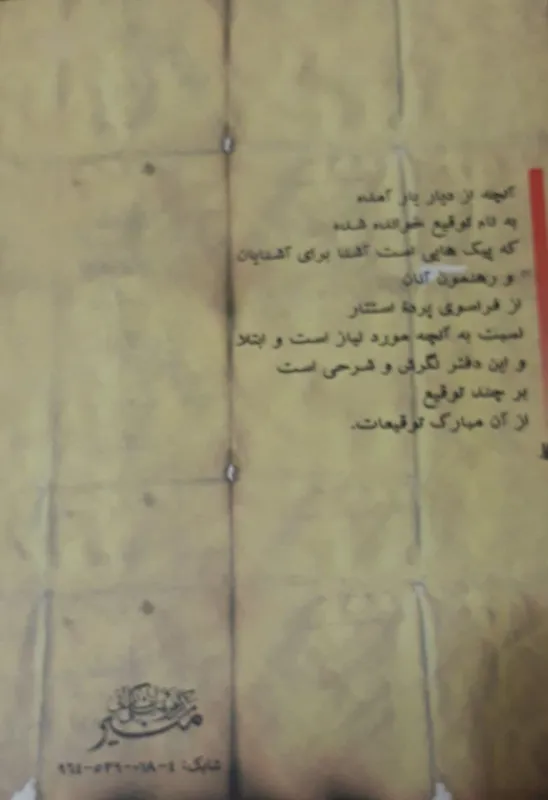 آنچه از دیار یار آمده
به نام توقیع خوانده شده
که پیک هایی است آشنا برای آشنایان
و رهنمون آنان
از فراسوی پردهٔ استتار
نسبت به آنچه مورد نیاز است و ابتلا
و این دفتر نگرش و شرحی است
بر چند توقیع
از آن مبارک توقیعات.
منیر
شابک: ۴-۰۶۸-۵۳۹-۹۶۴